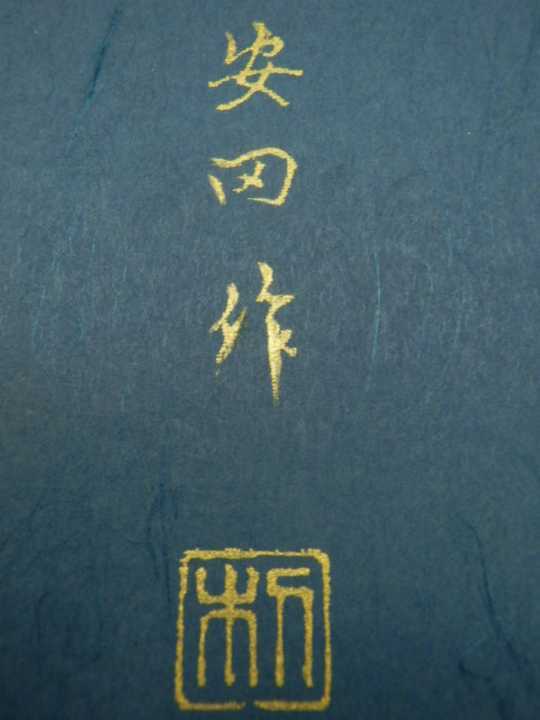 安
田
作